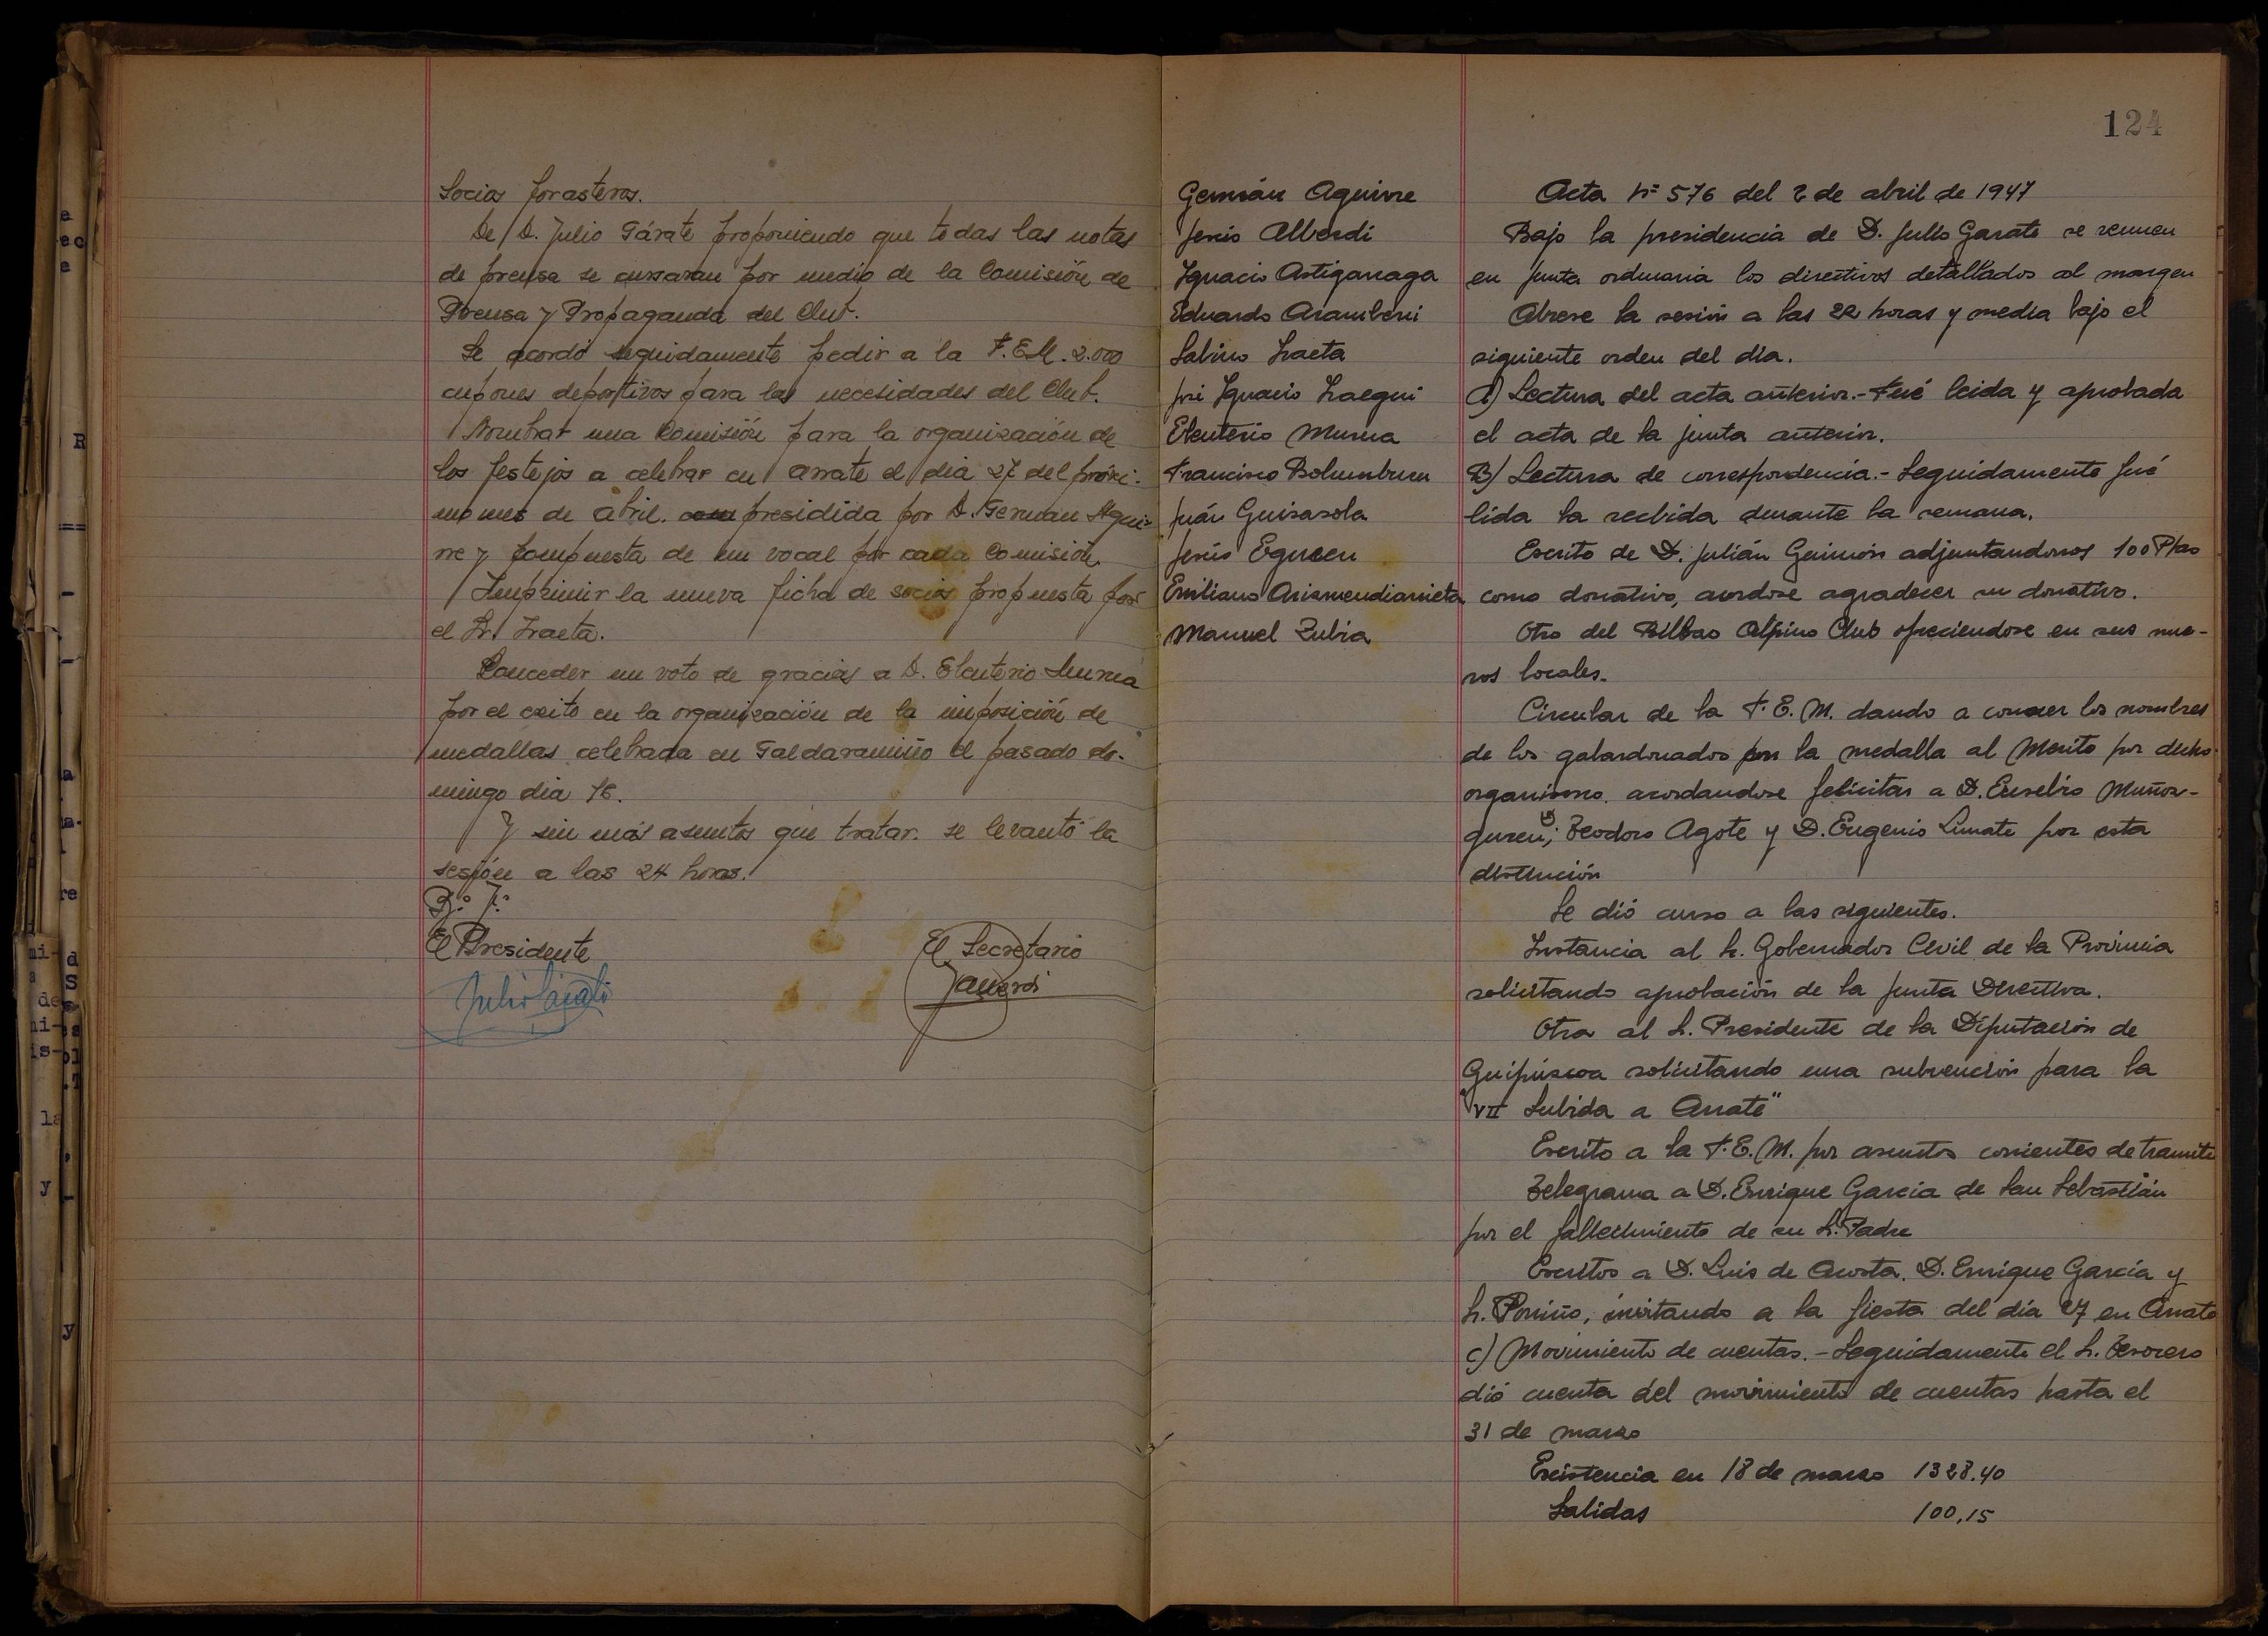 Socios forasteros.
De D. Julio Gárate proponiendo que todas las notas
de prensa se cursaran por medio de la Comisión de
Prensa y Propaganda del Club.
Se acordó seguidamente pedir a la F.E.M. 2.000
cupones deportivos para las necesidades del Club.
Nombrar una Comisión para la organización de
los festejos a celebrar en Arrate el dia 27 del próxi-
mo mes de abril. presidida por D. German Aguir-
re y compuesta de un vocal por cada Comisión.
Imprimir la nueva ficha de socios propuesta por
el Sr. Iraeta.
Conceder un voto de gracias a D. Eleuterio Murua
por el exito en la organización de la imposición de
medallas celebrada en Galdaramiño el pasado do-
mingo dia 16.
Y sin más asuntos que tratar. se levantó la
sesión a las 24 horas.
Vº Bº
El Presidente
Julio Gárate
El Secretario
124
Germán Aguirre
Jesús Alberdi
Ignacio Artiganaga
Eduardo Aramberri
Sabino Iraeta
José Ignacio Iraegui
Eleuterio Murua
Francisco Bolumburu
Juán Guisasola
Jesús Eguren
Emiliano Arismendiarrieta
Manuel Zubia
Acta Nº 576 del 2 de abril de 1947
Bajo la presidencia de D. Julio Garate se reunen
en junta ordinaria los directivos detallados al margen
Abrese la sesión a las 22 horas y media bajo el
siguiente orden del dia.
A) Lectura del acta anterior.- Fué leida y aprobada
el acta de la junta anterior.
B) Lectura de correspondencia.- Seguidamente fué
lida la recibida durante la semana.
Escrito de D. Julián Guimón adjuntandonos 100 Ptas
como donativo, acordose agradecer su donativo.
Otro del Bilbao Alpino Club ofreciendose en sus nue-
vos locales.
Circular de la F.E.M. dando a conocer los nombres
de los galardonados con la medalla al Merito por dicho
organismo. acordandose felicitar a D. Eusebio Muñoz-
guren, D. Teodoro Agote y D. Eugenio Lunate por esta
distinción
Se dió curso a las siguientes.
Instancia al Sr. Gobernador Civil de la Provincia
solicitando aprobación de la Junta Directiva.
Otra al Sr. Presidente de la Diputación de
Guipúscoa solicitando una subvención para la
"VII Subida a Arrate"
Escrito a la F.E.M. por asuntos corrientes de tramite
Telegrama a D. Enrique Garcia de San Sebastián
por el fallecimiento de su Sr. Padre
Escritos a D. Luis de Acosta. D. Enrique García y
Sr. Porriño, invitando a la fiesta del día 27 en Arrate
C) Movimiento de cuentas.- Seguidamente el Sr. Tesorero
dió cuenta del movimiento de cuentas hasta el
31 de marzo
Existencia en 18 de marzo 1328.40
Salidas 100,15